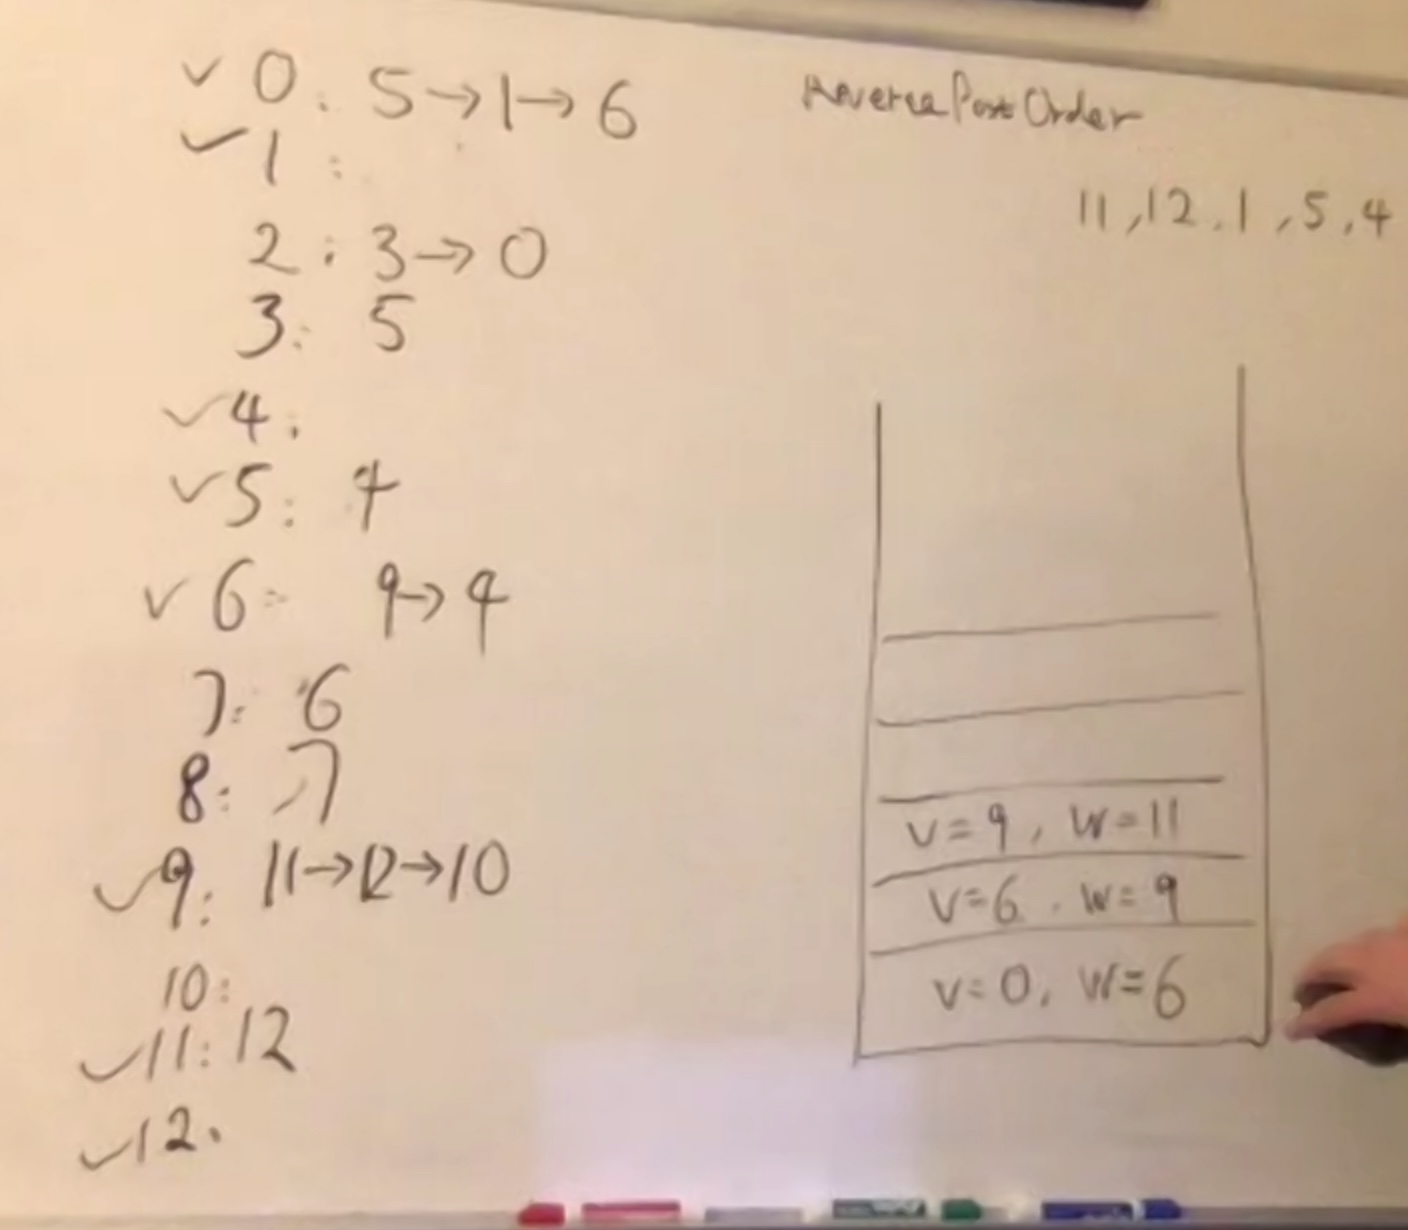 ✓ 0: 5→1→6
✓ 1:
2: 3→0
3: 5
✓ 4:
✓ 5: 4
✓ 6: 9→4
7: 6
8: 7
✓ 9: 11→12→10
10:
✓ 11: 12
✓ 12:
Reverse Post Order
11, 12, 1, 5, 4
v=9, w=11
v=6, w=9
v=0, w=6